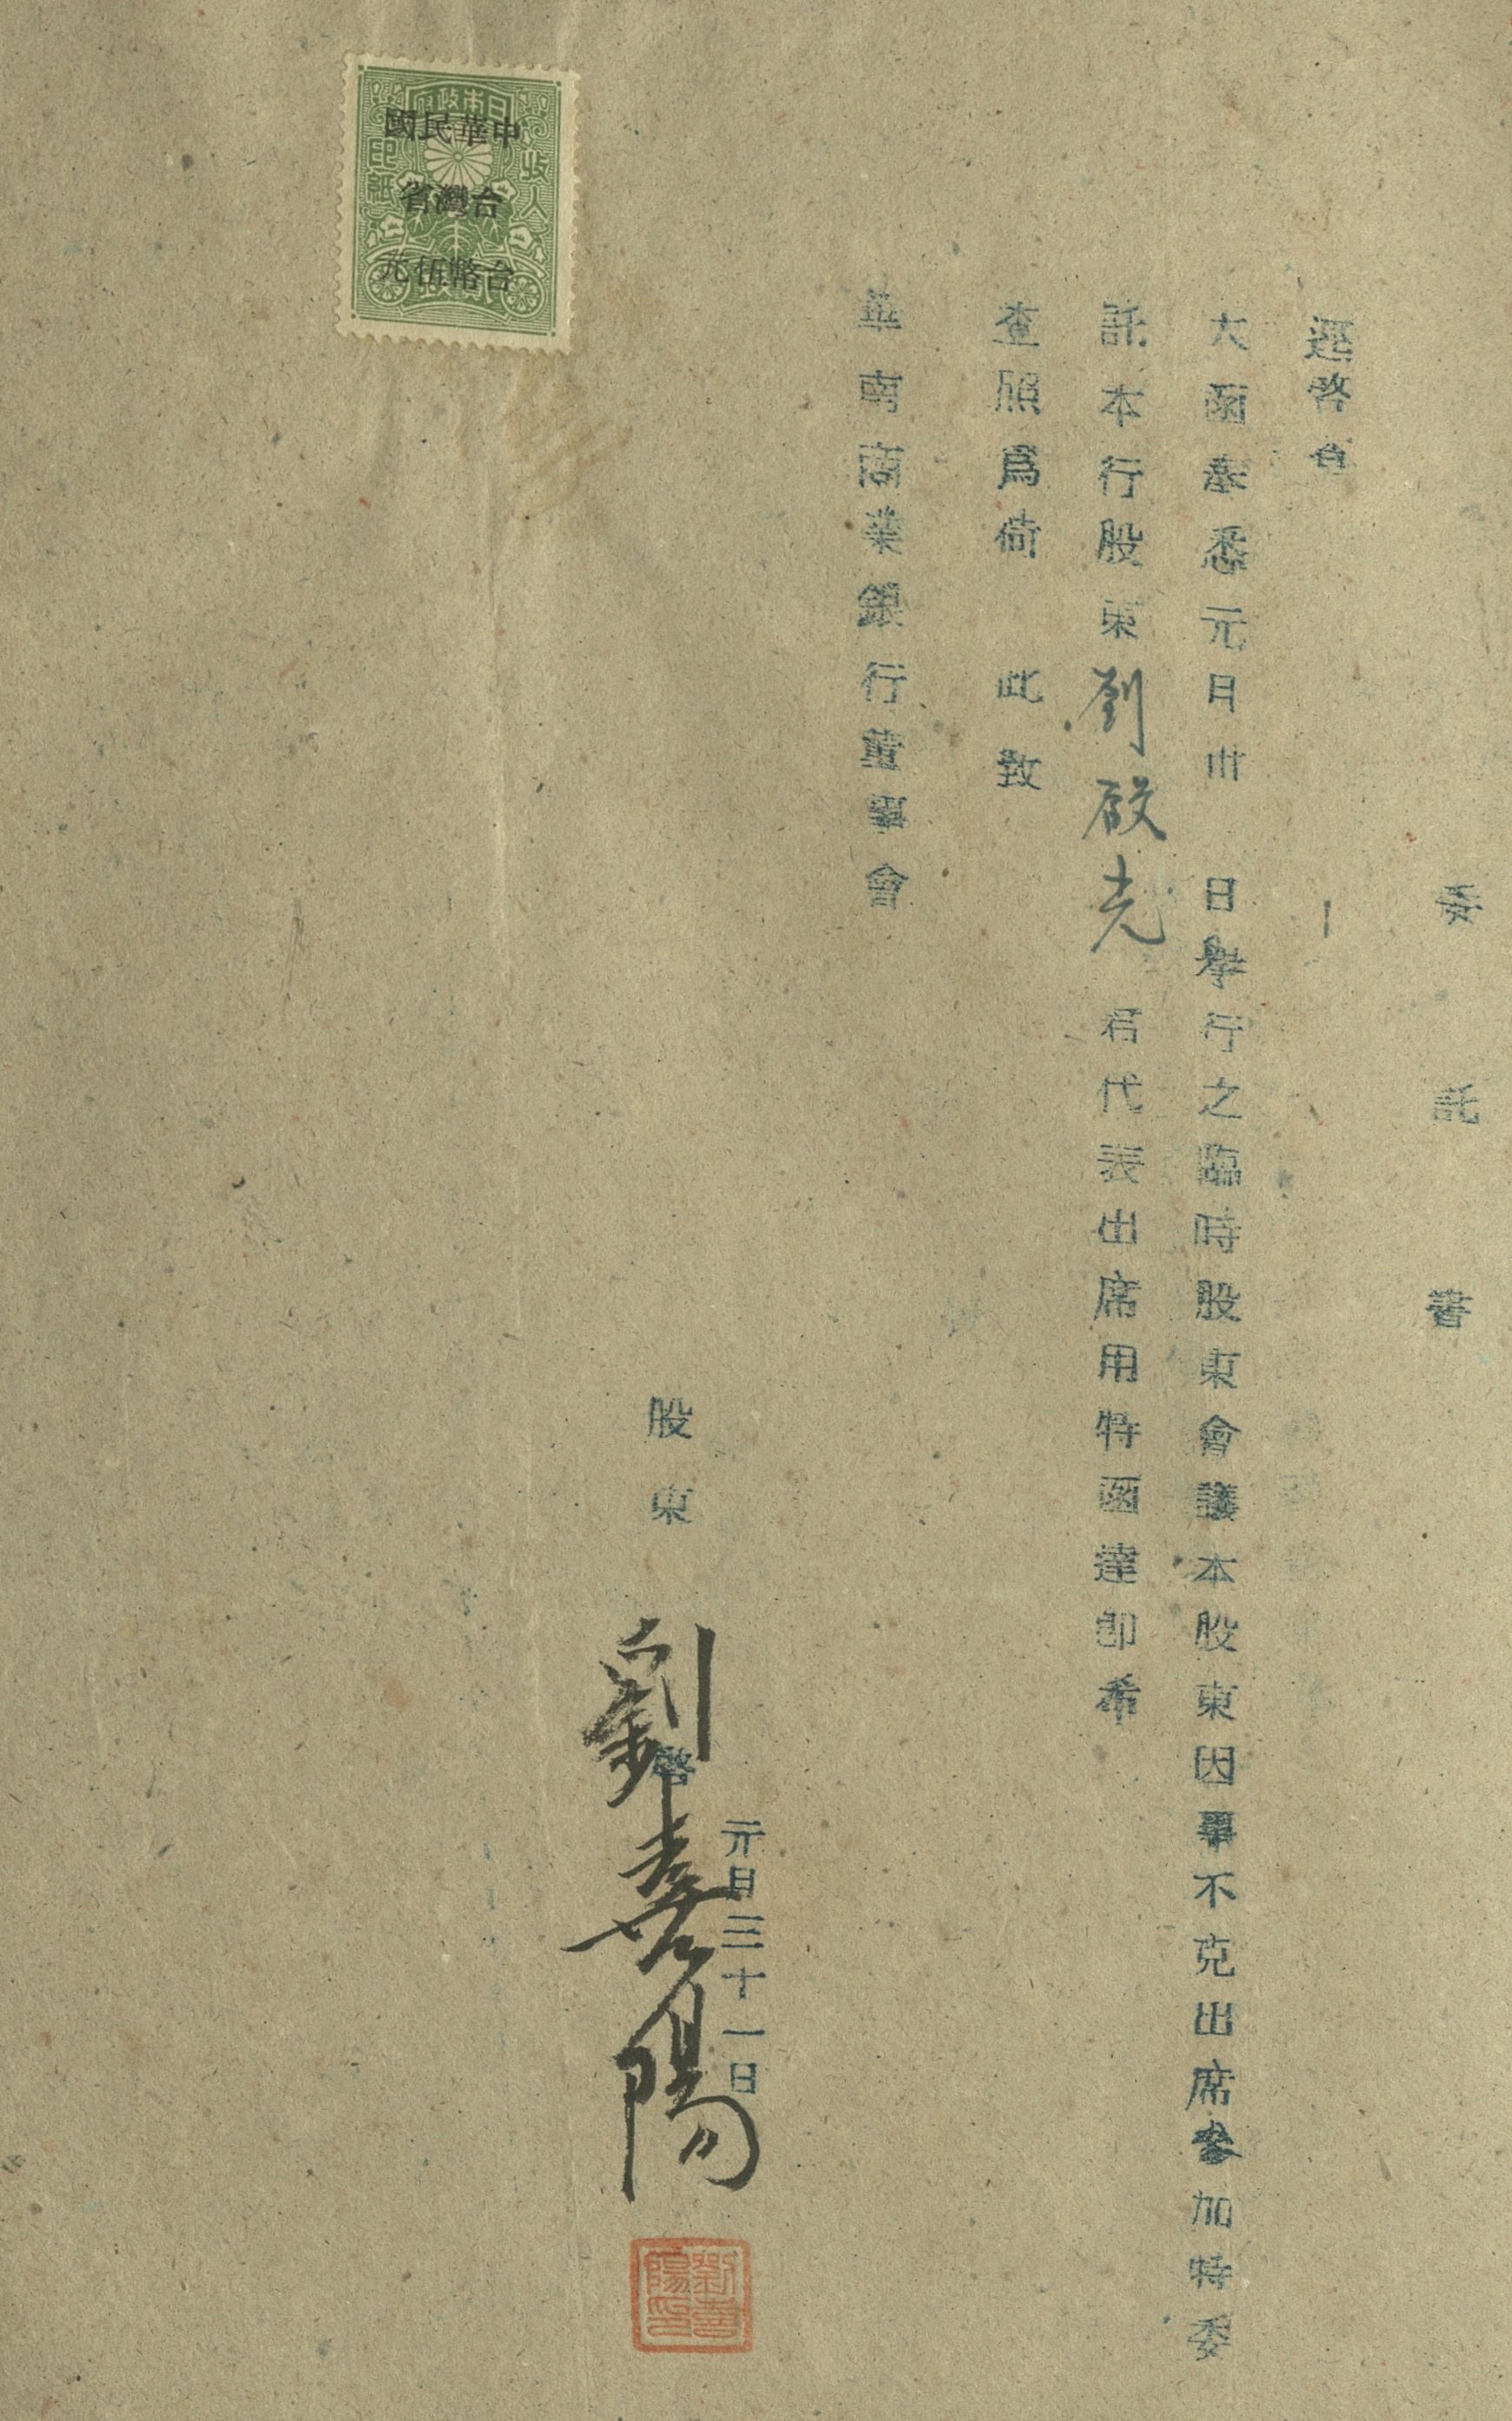 委託書
逕啓者
大函奉悉元月卅 日舉行之臨時股東會議本股東因事不克出席參加特委
託本行股東劉啟光 君代表出席用特函達即希
查照爲荷 此致
華南商業銀行董事會
元月三十一日
股東 劉喜陽 啓
劉喜陽印
日本政府
收入印紙
中華民國
台灣省
台幣伍元